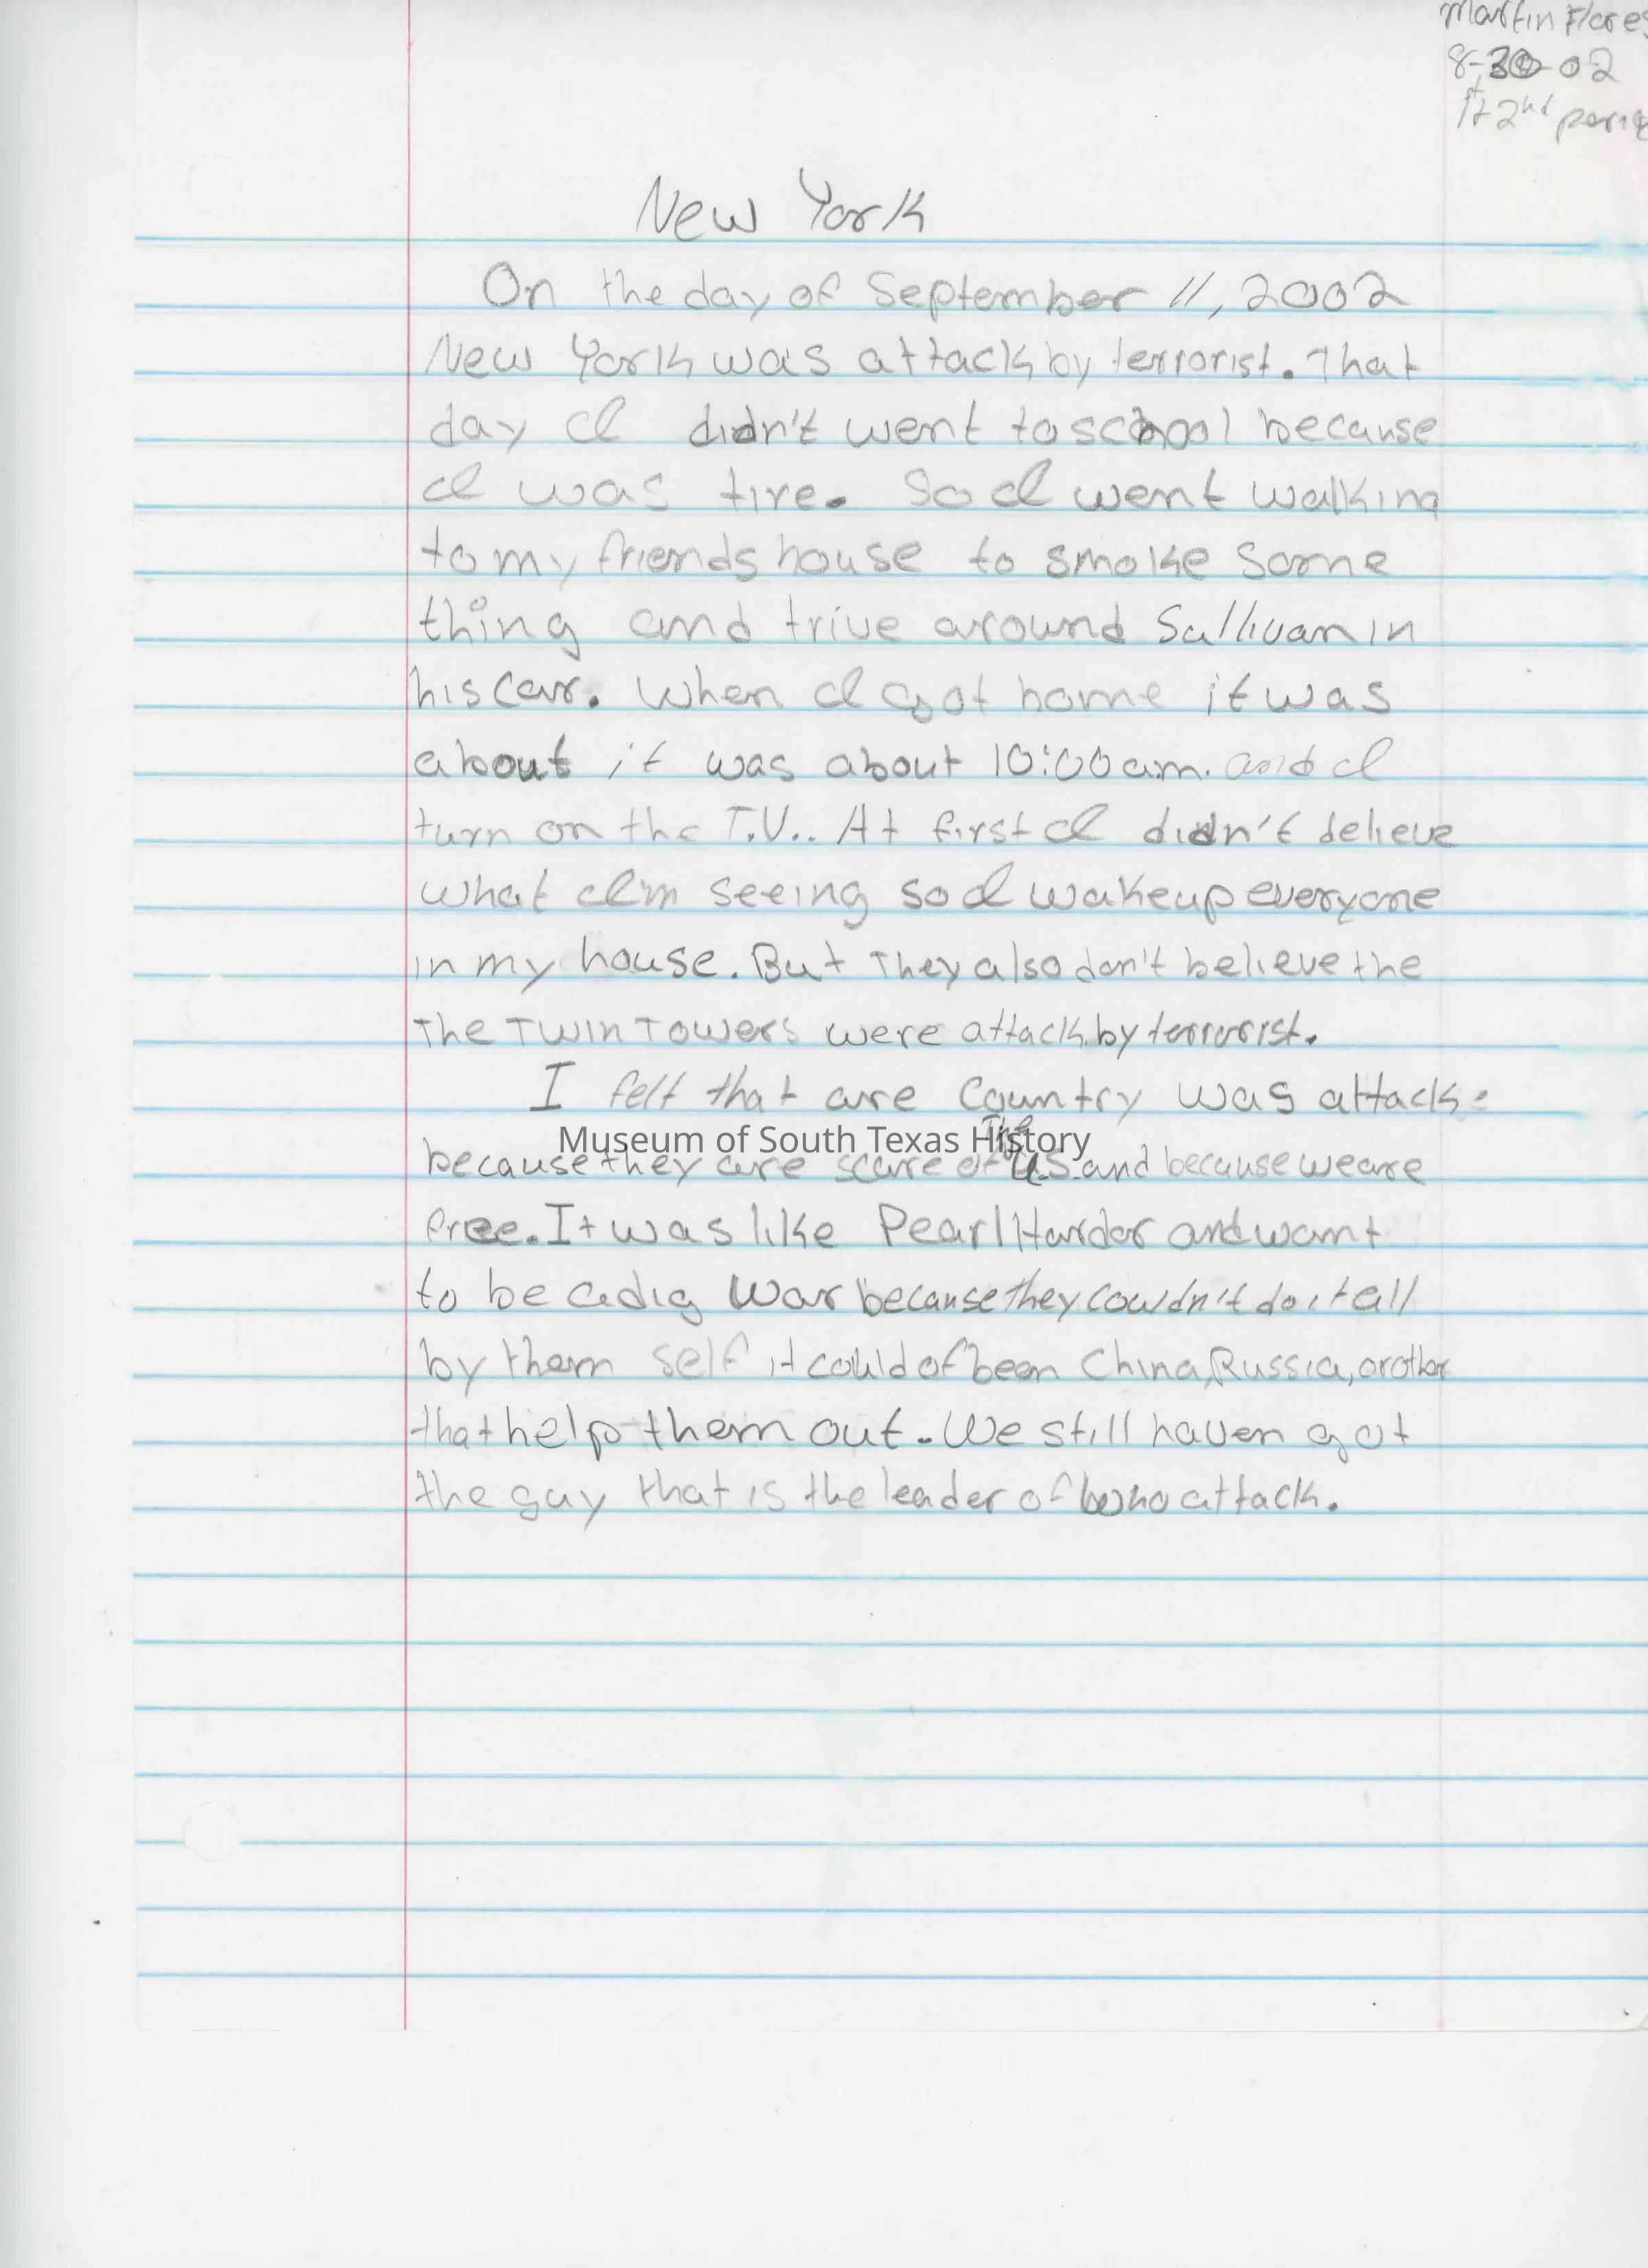 Martin Flores
8-30-02
1st 2nd perio
New York
On the day of September 11, 2002
New York was attack by terrorist. That
day I didn't went to school because
I was tire. So I went walking
to my friends house to smoke some
thing and trive around Sullivan in
his car. When I got home it was
about it was about 10:00 am. and I
turn on the T.V.. At first I didn't delieve
what I'm seeing so I wakeup everyone
in my house. But They also don't believe the
the Twin Towers were attack by terrorist.
I felt that are Country was attack
Museum of South Texas History
because they are scare of the U.S. and because we are
free. It was like Pearl Hardor and want
to be a dig war because they couldn't do it all
by them self it could of been China, Russia, or other
that help them out. We still haven got
the guy that is the leader of who attack.